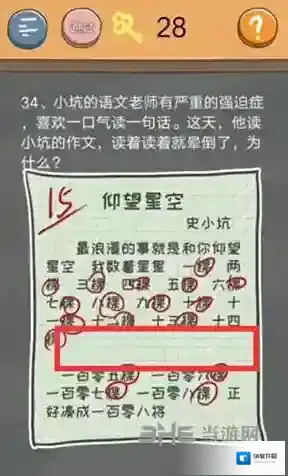 28
34、小坑的语文老师有严重的强迫症
，喜欢一口气读一句话。这天，他读
小坑的作文，读着读着就晕倒了，为
什么？
15
仰望星空
史小坑
最浪漫的事就是和你仰望
星空 我数着星星 一棵 两
棵 三棵 四棵 五棵 六棵
七棵 八棵 九棵 十棵 十
一棵 十二棵 十三棵 十四
棵
一百零五棵 一百零六棵
一百零七棵 一百零八棵 正
好凑成一百零八将
当游网